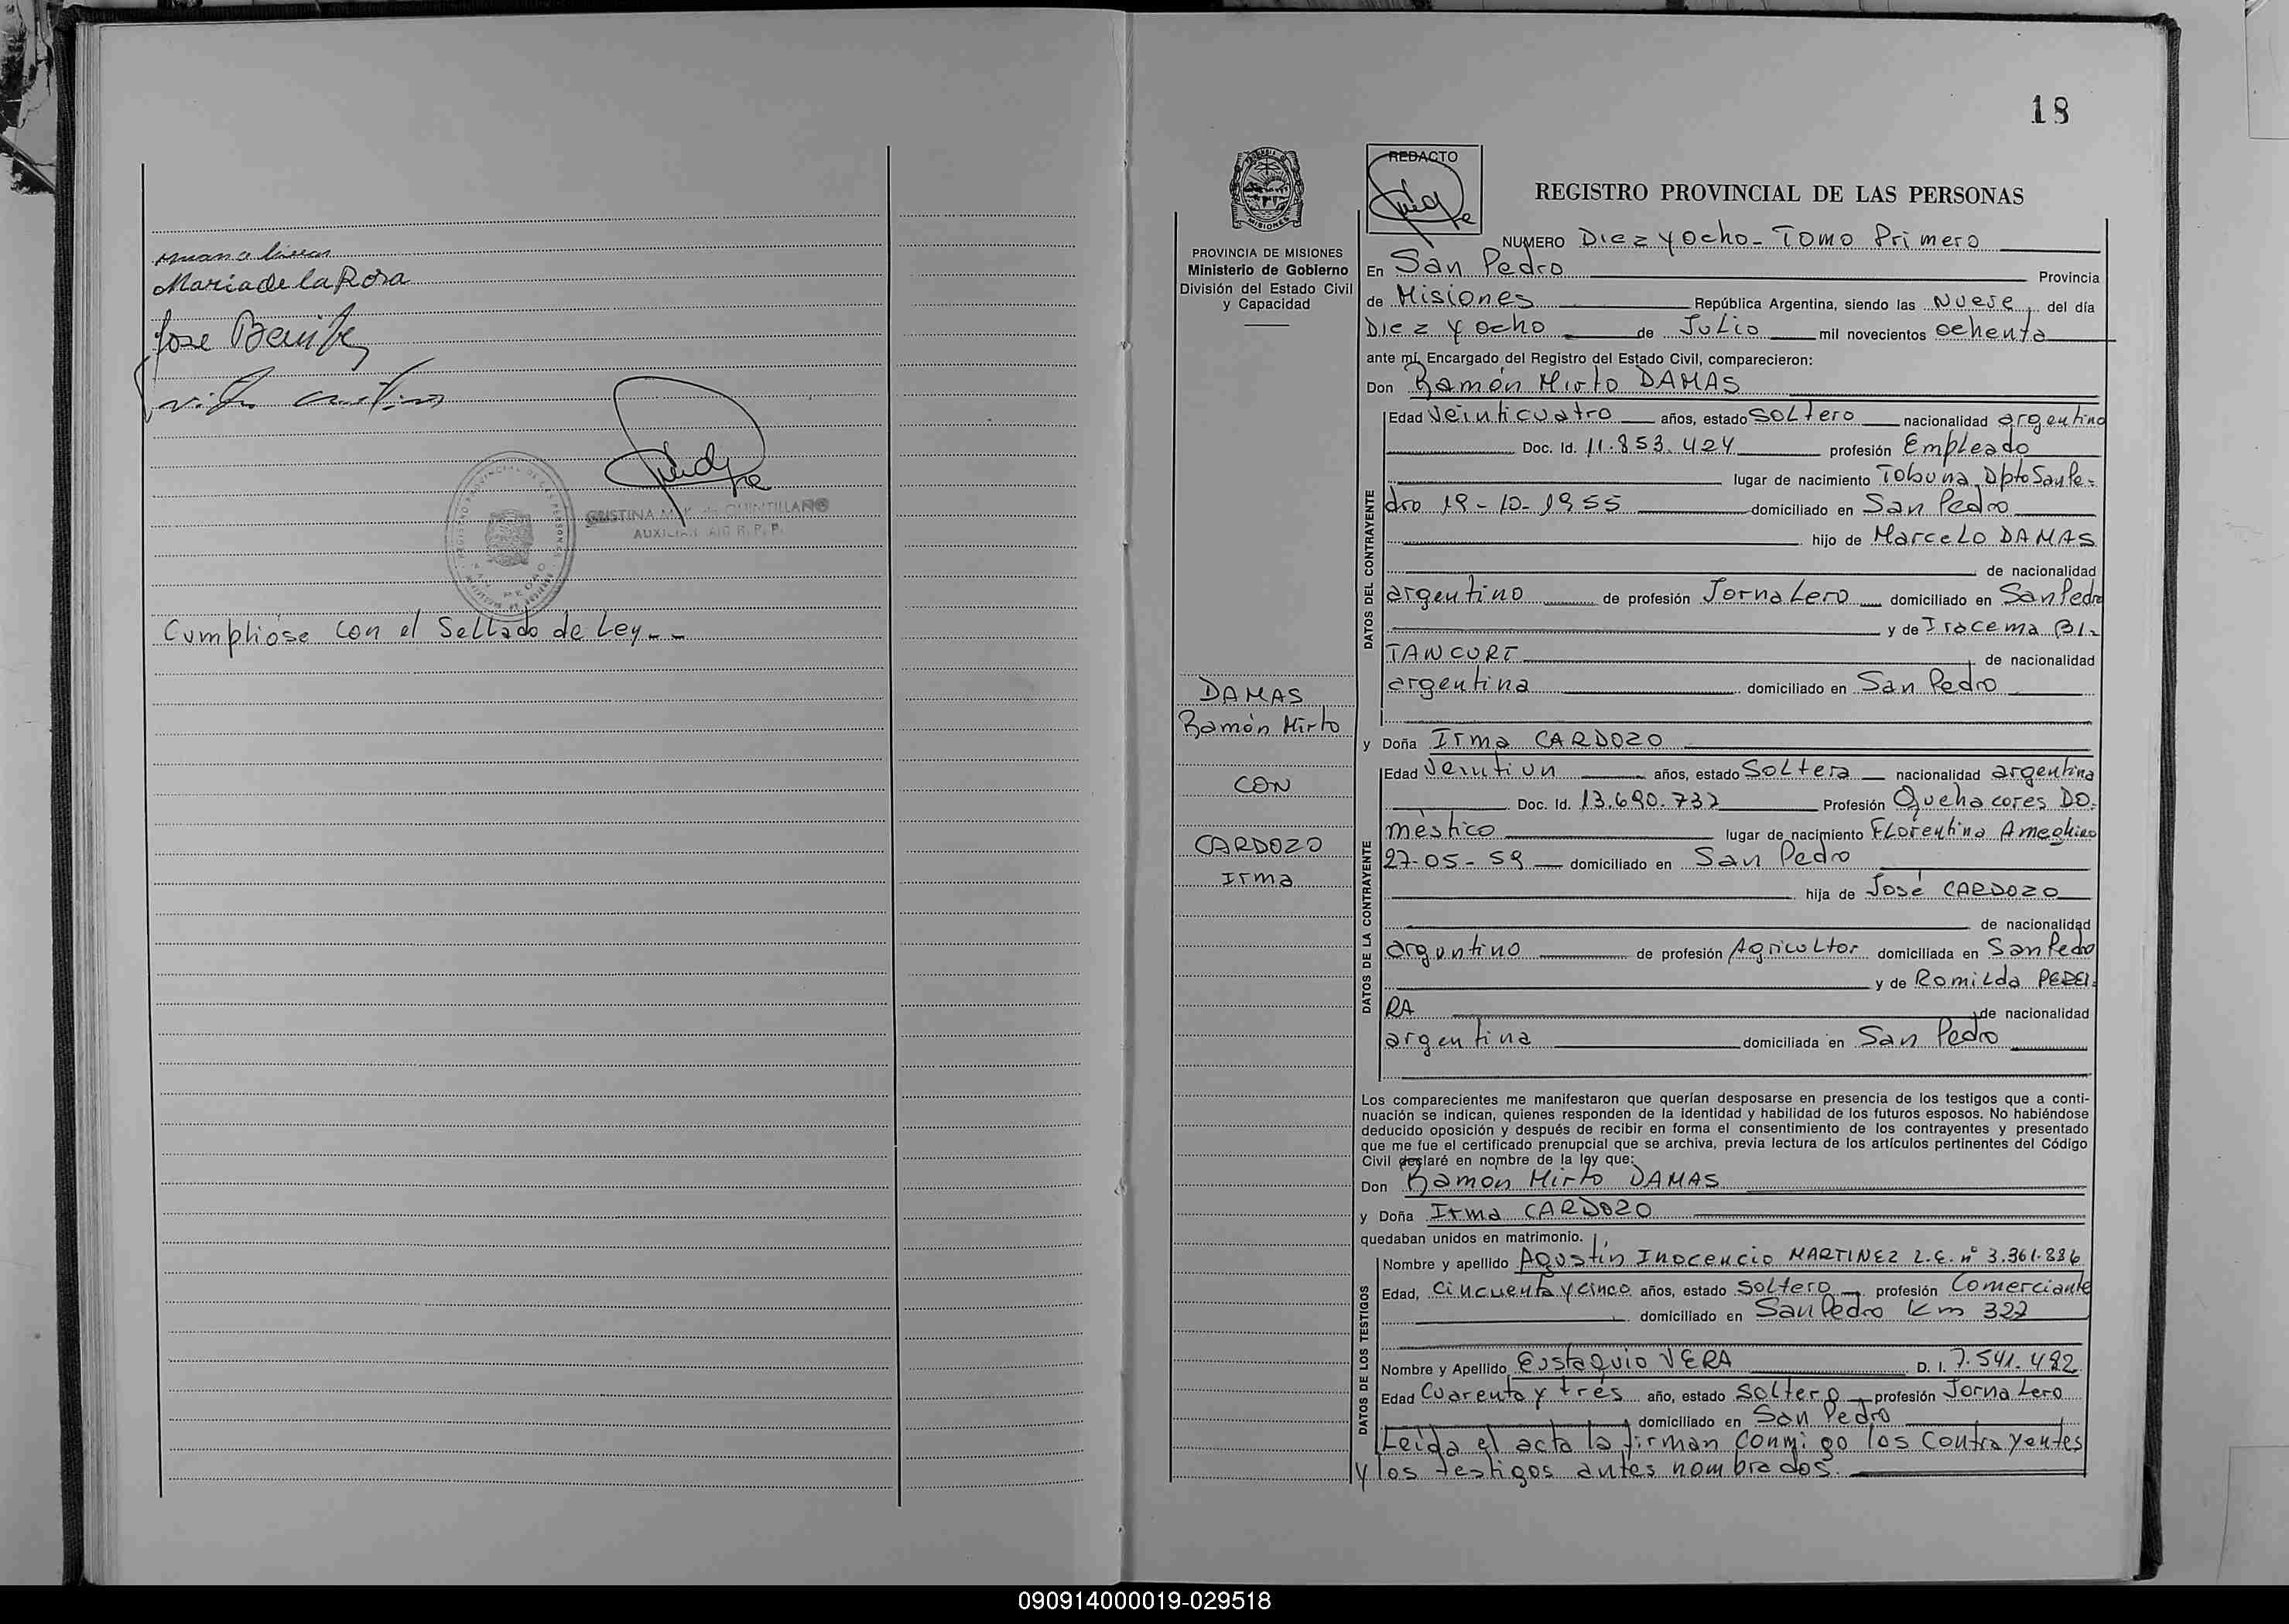 Maria de la Rosa
Jose
CRISTINA M. K. de QUINTILLANO
AUXILIAR R. P. P.
REGISTRO PROVINCIAL DE LAS PERSONAS
SAN PEDRO
Cumplióse con el Sellado de Ley--
18
PROVINCIA DE MISIONES
Ministerio de Gobierno
División del Estado Civil
y Capacidad
DAMAS
Ramón Mirto
CON
CARDOZO
Irma
REDACTO
REGISTRO PROVINCIAL DE LAS PERSONAS
NUMERO Diez y ocho - Tomo Primero
En San Pedro Provincia
de Misiones República Argentina, siendo las Nueve, del día
Diez y ocho de Julio mil novecientos ochenta
ante mí, Encargado del Registro del Estado Civil, comparecieron:
Don Ramón Mirto DAMAS
DATOS DEL CONTRAYENTE
Edad veinticuatro años, estado soltero nacionalidad argentino
Doc. Id. 11.853.424 profesión Empleado
lugar de nacimiento Tobuna Dpto San Pe-
dro 19-10-1955 domiciliado en San Pedro
hijo de Marcelo DAMAS
de nacionalidad
argentino de profesión Jornalero domiciliado en San Pedro
y de Iracema BI-
TANCURT de nacionalidad
argentina domiciliado en San Pedro
y Doña Irma CARDOZO
DATOS DE LA CONTRAYENTE
Edad Veintiun años, estado Soltera nacionalidad argentina
Doc. Id. 13.690.732 Profesión Quehacores DO-
méstico lugar de nacimiento Florentina Ameghino
27-05-59 domiciliado en San Pedro
hija de José CARDOZO
de nacionalidad
argentino de profesión Agricultor domiciliada en San Pedro
y de Romilda PEREI-
RA de nacionalidad
argentina domiciliada en San Pedro
Los comparecientes me manifestaron que querían desposarse en presencia de los testigos que a conti-
nuación se indican, quienes responden de la identidad y habilidad de los futuros esposos. No habiéndose
deducido oposición y después de recibir en forma el consentimiento de los contrayentes y presentado
que me fue el certificado prenupcial que se archiva, previa lectura de los artículos pertinentes del Código
Civil declaré en nombre de la ley que:
Don Ramón Mirto DAMAS
y Doña Irma CARDOZO
quedaban unidos en matrimonio.
DATOS DE LOS TESTIGOS
Nombre y apellido Agustín Inocencio MARTINEZ L.E. nº 3.361.886
Edad, Cincuenta y cinco años, estado soltero profesión Comerciante
domiciliado en San Pedro Km 322
Nombre y Apellido Eustaquio VERA D. I. 7.541.482
Edad Cuarenta y tres año, estado soltero profesión Jornalero
domiciliado en San Pedro
Leida el acta la firman conmigo los contrayentes
y los testigos antes nombrados.
090914000019-029518